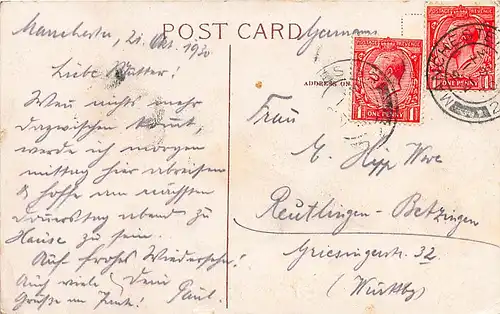 POST CARD
Manchester, 21. Okt. 1930
Germany
Liebe Mutter!
Wenn nichts mehr
dazwischen kommt,
werde ich morgen
mittag hier abreisen
& hoffe am nächsten
Donnerstag abend zu
Hause zu sein.
Auf frohes Wiedersehn!
Auch viele Dein
Grüße an Paul.
ADDRESS ON
POSTAGE REVENUE
ONE PENNY
POSTAGE REVENUE
ONE PENNY
MANCHESTER
Frau
E. Hipp Wwe
Reutlingen-Betzingen
Griesingerstr. 32
(Württbg)